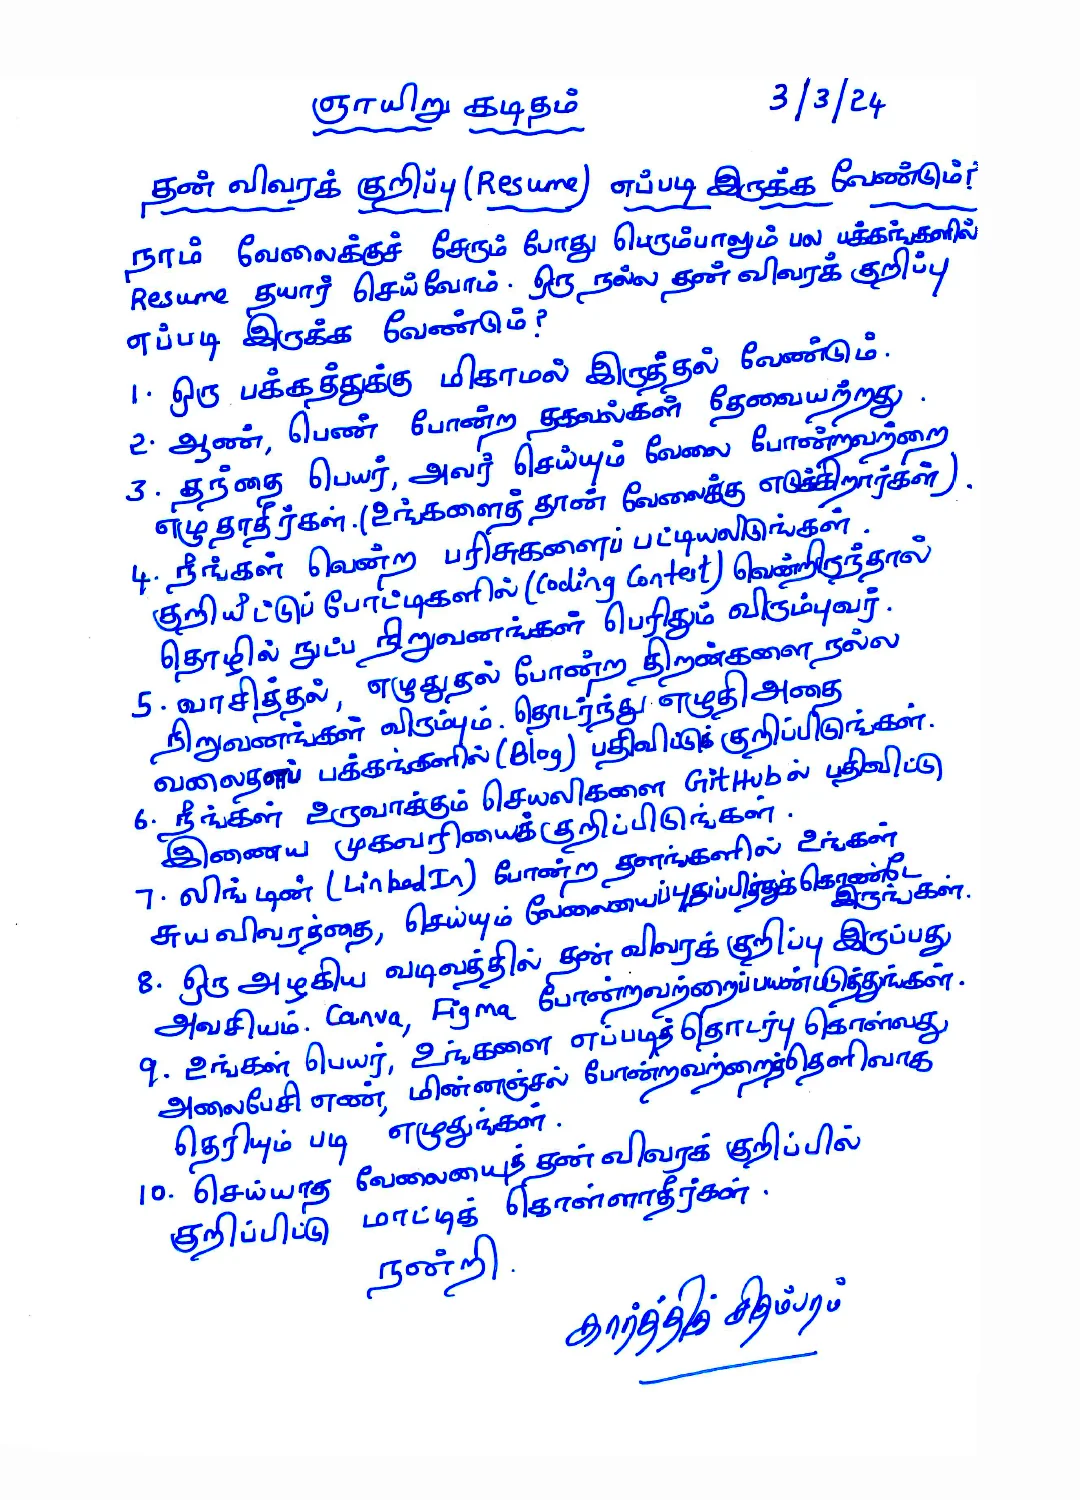 ஞாயிறு கடிதம் 3/3/24
தன் விவரக் குறிப்பு (Resume) எப்படி இருக்க வேண்டும்?
நாம் வேலைக்குச் சேரும் போது பெரும்பாலும் பல பக்கங்களில்
Resume தயார் செய்வோம். ஒரு நல்ல தன் விவரக் குறிப்பு
எப்படி இருக்க வேண்டும்?
1. ஒரு பக்கத்துக்கு மிகாமல் இருத்தல் வேண்டும்.
2. ஆண், பெண் போன்ற தகவல்கள் தேவையற்றது.
3. தந்தை பெயர், அவர் செய்யும் வேலை போன்றவற்றை
எழுதாதீர்கள். (உங்களைத் தான் வேலைக்கு எடுக்கிறார்கள்).
4. நீங்கள் வென்ற பரிசுகளைப் பட்டியலிடுங்கள்.
குறியீட்டுப் போட்டிகளில் (Coding Contest) வென்றிருந்தால்
தொழில் நுட்ப நிறுவனங்கள் பெரிதும் விரும்புவர்.
5. வாசித்தல், எழுதுதல் போன்ற திறன்களை நல்ல
நிறுவனங்கள் விரும்பும். தொடர்ந்து எழுதி அதை
வலைதளப் பக்கங்களில் (Blog) பதிவிட்டுக் குறிப்பிடுங்கள்.
6. நீங்கள் உருவாக்கும் செயலிகளை GitHubல் பதிவிட்டு
இணைய முகவரியைக் குறிப்பிடுங்கள்.
7. லிங்டின் (LinkedIn) போன்ற தளங்களில் உங்கள்
சுய விவரத்தை, செய்யும் வேலையைப் புதுப்பித்துக் கொண்டே
இருங்கள்.
8. ஒரு அழகிய வடிவத்தில் தன் விவரக் குறிப்பு இருப்பது
அவசியம். Canva, Figma போன்றவற்றைப் பயன்படுத்துங்கள்.
9. உங்கள் பெயர், உங்களை எப்படித் தொடர்பு கொள்வது,
அலைபேசி எண், மின்னஞ்சல் போன்றவற்றைத் தெளிவாக
தெரியும் படி எழுதுங்கள்.
10. செய்யாத வேலையைத் தன் விவரக் குறிப்பில்
குறிப்பிட்டு மாட்டிக் கொள்ளாதீர்கள்.
நன்றி.
கார்த்திக் சிதம்பரம்